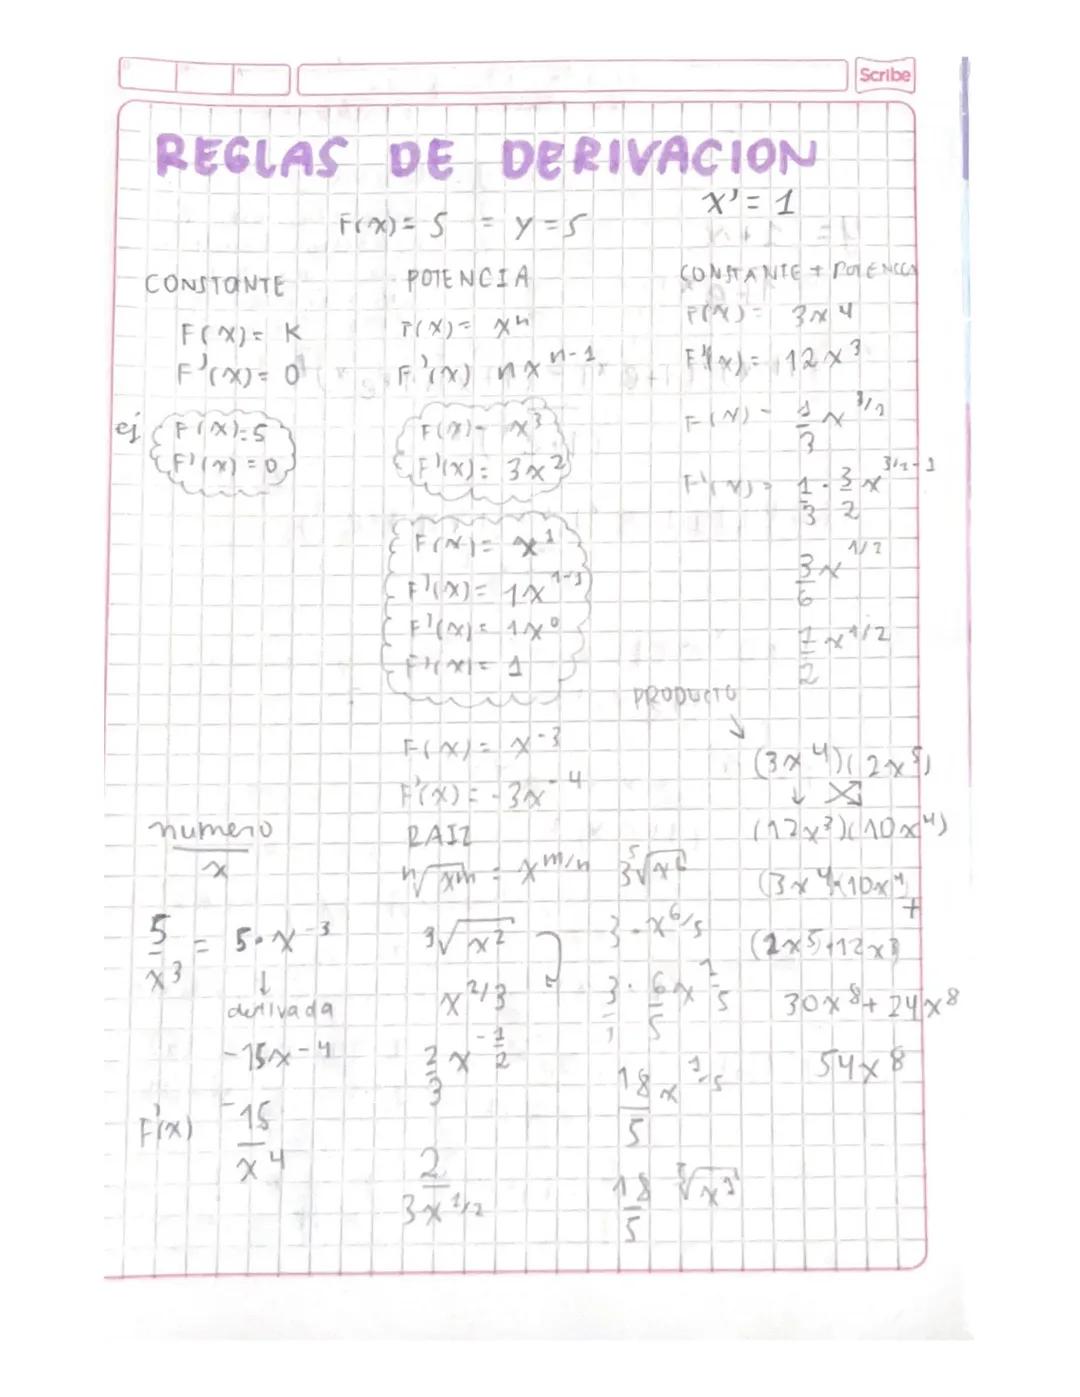 Scribe
REGLAS DE DERIVACION
x' = 1
F(x) = 5 = y = 5
CONSTANTE
F(x) = K
F'(x) = 0
ej
F(x) = 5
F'(x) = 0
POTENCIA
F(x) = x^n
F'(x) nx^n-1
F(x) = x^3
F'(x) = 3x^2
F(x) = x^1
F'(x) = 1x^1-1
F'(x) = 1x^0
F'(x) = 1
F(x) = x^-3
F'(x) = -3x^-4
CONSTANTE + POTENCIA
F(x) = 3x^4
F'(x) = 12x^3
F'(x) = 1/3 · 3/2 x^3/2-1
3/6 x^1/2
1/2 x^1/2
PRODUCTO
(3x^4)(2x^5)
(12x^3)(10x^4)
(3x^4)(10x^4) +
30x^8 + 24x^8
54x^8
numero/x
5/x^3 = 5·x^-3
derivada
-15x^-4
F'(x) -15/x^4
RAIZ
n√x^m = x^m/n
3√x^2
x^2/3
2/3 x^-1/2
2/3x^1/2
3 · x^6/5